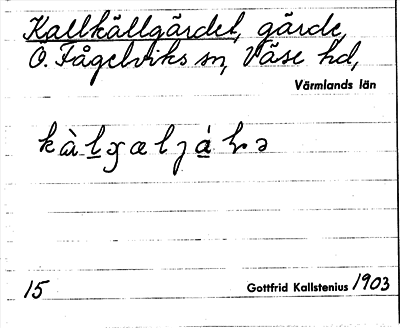 Kallkällgärdet, gärde,
Ö. Fågelviks sn, Väse hd,
Värmlands län
15
Gottfrid Kallstenius 1903